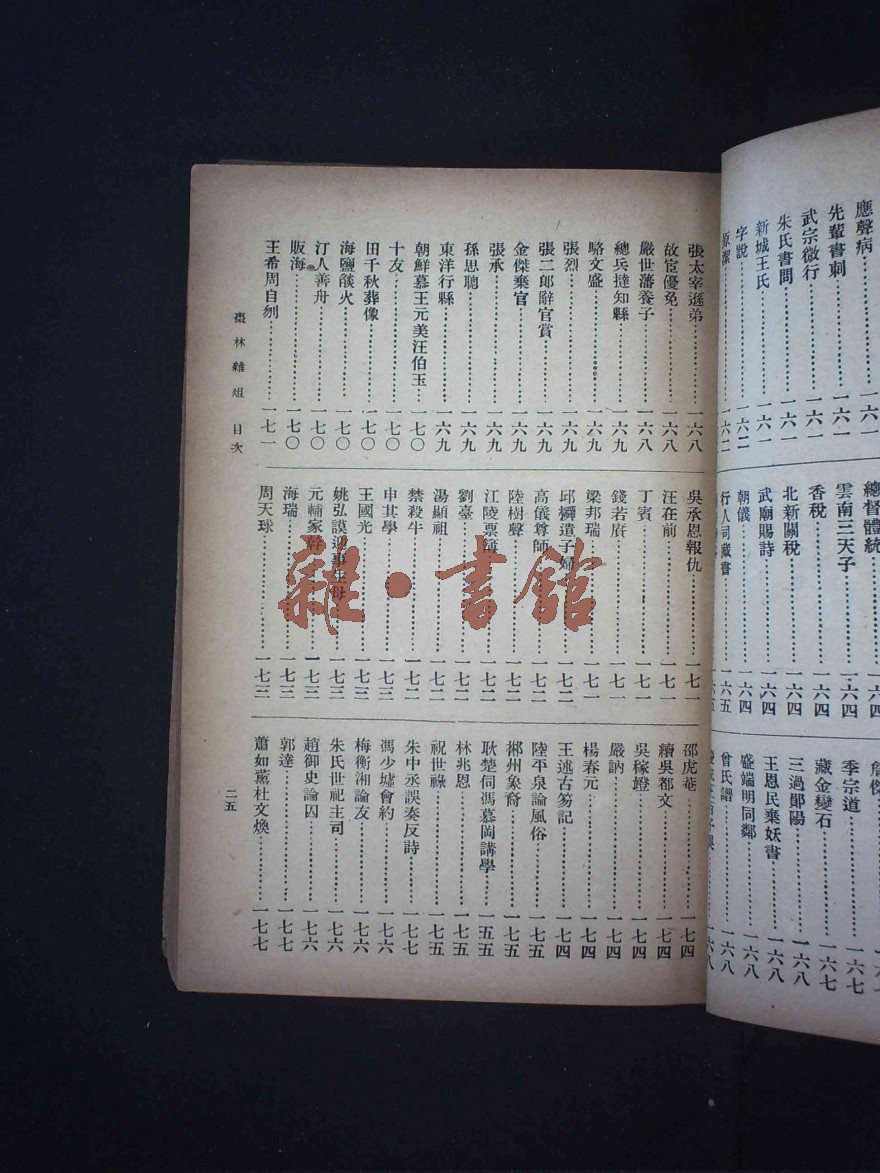 應聲病
先輩書刺……一六一
武宗微行……一六一
朱氏書問……一六一
新城王氏……一六一
字說……一六二
原潔……一六二
總督體統……一六四
雲南三天子……一六四
香稅……一六四
北新關稅……一六四
武廟賜詩……一六四
朝儀……一六四
行人司藏書……一六五
季宗道……一六七
藏金變石……一六七
三過鄖陽……一六八
王恩民棄妖書……一六八
盛端明同鄰……一六八
曾氏譜……一六八
張太宰遜弟……一六八
故宦優免……一六八
嚴世藩養子……一六八
總兵撻知縣……一六九
駱文盛……一六九
張烈……一六九
張二郎辭官賞……一六九
金傑棄官……一六九
張承……一六九
孫思聰……一六九
東洋行縣……一六九
朝鮮慕王元美汪伯玉……一七〇
十友……一七〇
田千秋葬像……一七〇
海鹽燄火……一七〇
汀人善舟……一七〇
販海……一七〇
王希周自刎……一七一
吳承恩報仇……一七一
汪在前……一七一
丁賓……一七一
錢若賡……一七一
梁邦瑞……一七一
邱橓遣子婦……一七二
高儀尊師……一七二
陸樹聲……一七二
江陵票簿……一七二
劉臺……一七二
湯顯祖……一七二
禁殺牛……一七二
申其學……一七三
王國光……一七三
姚弘謨迎事生母……一七三
元輔家幹……一七三
海瑞……一七三
周天球……一七三
邵虎菴……一七四
續吳都文……一七四
吳稼竳……一七四
嚴訥……一七四
楊春元……一七四
王述古笏記……一七四
陸平泉論風俗……一七五
郴州象裔……一七五
耿楚侗馮慕岡講學……一五五
林兆恩……一七五
祝世祿……一七五
朱中丞誤奏反詩……一七七
馮少墟會約……一七六
梅衡湘論友……一七六
朱氏世祀主司……一七六
趙御史論囚……一七六
郭達……一七七
蕭如薰杜文煥……一七七
棗林雜俎 目次
二五
雜·書館